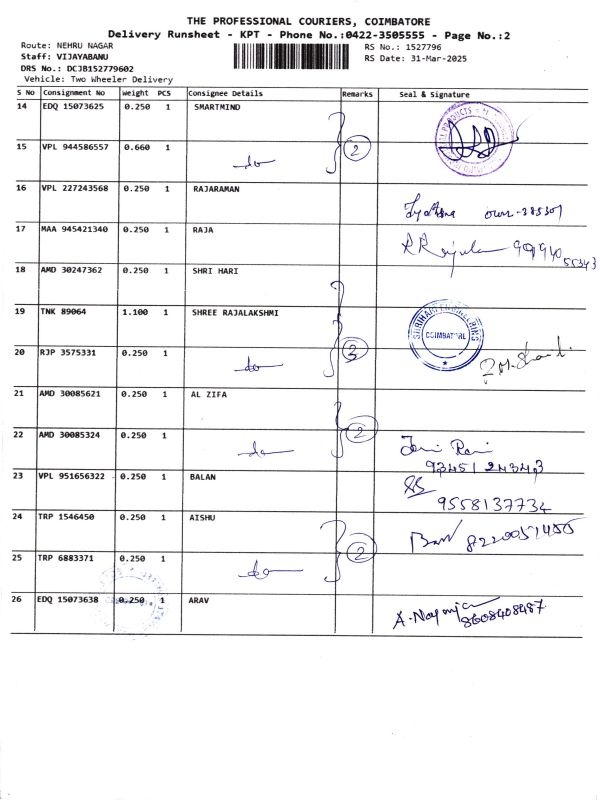 THE PROFESSIONAL COURIERS, COIMBATORE
Delivery Runsheet - KPT - Phone No.:0422-3505555 - Page No.:2
Route: NEHRU NAGAR
RS No.: 1527796
Staff: VIJAYABANU
RS Date: 31-Mar-2025
DRS No.: DCJB152779602
Vehicle: Two Wheeler Delivery
S No Consignment No Weight PCS Consignee Details Remarks Seal & Signature
14 EDQ 15073625 0.250 1 SMARTMIND
15 VPL 944586557 0.660 1 do 2
16 VPL 227243568 0.250 1 RAJARAMAN
17 MAA 945421340 0.250 1 RAJA
18 AMD 30247362 0.250 1 SHRI HARI
19 TNK 89064 1.100 1 SHREE RAJALAKSHMI COIMBATORE
20 RJP 3575331 0.250 1 do 3
21 AMD 30085621 0.250 1 AL ZIFA
22 AMD 30085324 0.250 1 do 2
93451 24343
23 VPL 951656322 0.250 1 BALAN
9558137734
24 TRP 1546450 0.250 1 AISHU
25 TRP 6883371 0.250 1 do 2
26 EDQ 15073638 0.250 1 ARAV
8608408487